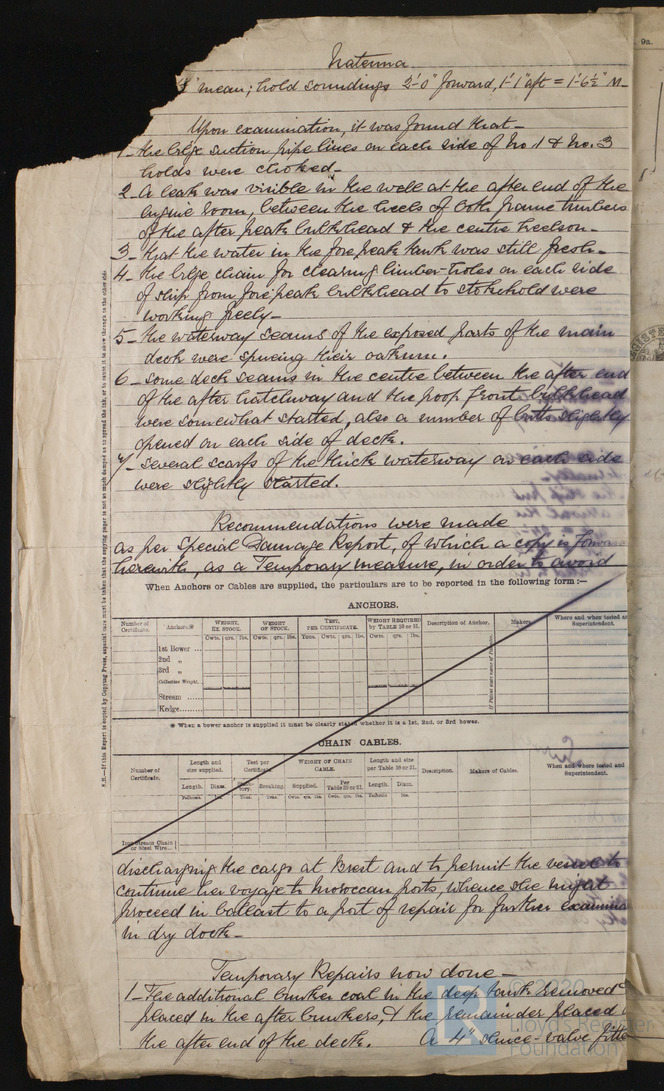 Natenna
" mean; hold soundings 2'-0" forward, 1'-1" aft = 1'-6½" M_
Upon examination, it was found that_
1_ the bilge suction pipe lines on each side of No. 1 & No. 3
holds were choked_
2_ A leak was visible in the well at the after end of the
engine room, between the heels of both frame timbers
of the after peak bulkhead & the centre keelson_
3_ that the water in the fore peak tank was still fresh_
4_ the bilge chain for clearing limber-holes on each side
of ship from fore peak bulkhead to stokehold were
working freely_
5_ the waterway seams of the exposed parts of the main
deck were spueing their oakum.
6_ some deck seams in the centre between the after end
of the after hatchway and the poop front bulkhead
were somewhat started, also a number of butts slightly
opened on each side of deck.
7_ several scarfs of the thick waterway on each side
were slightly started.
Recommendations were made
as per Special Damage Report, of which a copy is
herewith, as a Temporary measure, in order to avoid
When Anchors or Cables are supplied, the particulars are to be reported in the following form:—
ANCHORS.
Number of Certificate. Anchors.* WEIGHT, EX STOCK. WEIGHT OF STOCK. TEST, PER CERTIFICATE. WEIGHT REQUIRED by TABLE 20 or 21. Description of Anchor. Makers Where and when tested and Superintendent.
Cwts. qrs. lbs. Cwts. qrs. lbs. Tons. Cwts. qrs. lbs. Cwts. qrs. lbs.
1st Bower ...
2nd „
3rd „
Collective Weight.
Stream
Kedge
* When a bower anchor is supplied it must be clearly stated whether it is a 1st, 2nd, or 3rd bower.
CHAIN CABLES.
Number of Certificate. Length and size supplied. Test per Certificate. WEIGHT OF CHAIN CABLE. Length and size per Table 20 or 21. Description. Makers of Cables. When and where tested and Superintendent.
Length. Diam. Breaking. Supplied. Per Table 20 or 21. Length. Diam.
Iron Stream Chain or Steel Wire
discharging the cargo at Brest and to permit the vessel to
continue her voyage to Moroccan ports, whence she might
proceed in ballast to a port of repair for further
in dry dock_
Temporary Repairs now done_
1_ The additional bunker coal in the deep tank removed
placed in the after bunkers, & the remainder placed
the after end of the deck. A 4" sluice-valve
© 2020
Lloyd's Register
Foundation